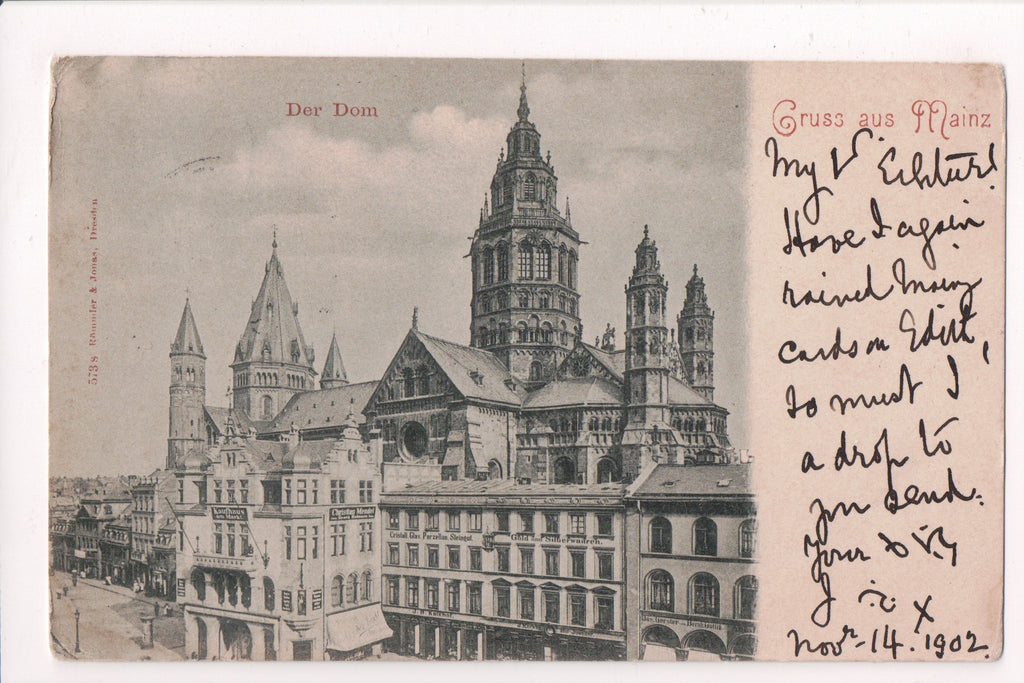 Der Dom
Gruss aus Mainz
5738 Römmler & Jonas, Dresden
My V
Have I again
rained Mainz
cards on Edith,
so must I
a drop to
you send.
Your
Novr 14. 1902.
Kaufhaus
am Markt
Christian Mendel
Cristall, Glas, Porzellan, Steingut.
Gold und Silberwaaren.